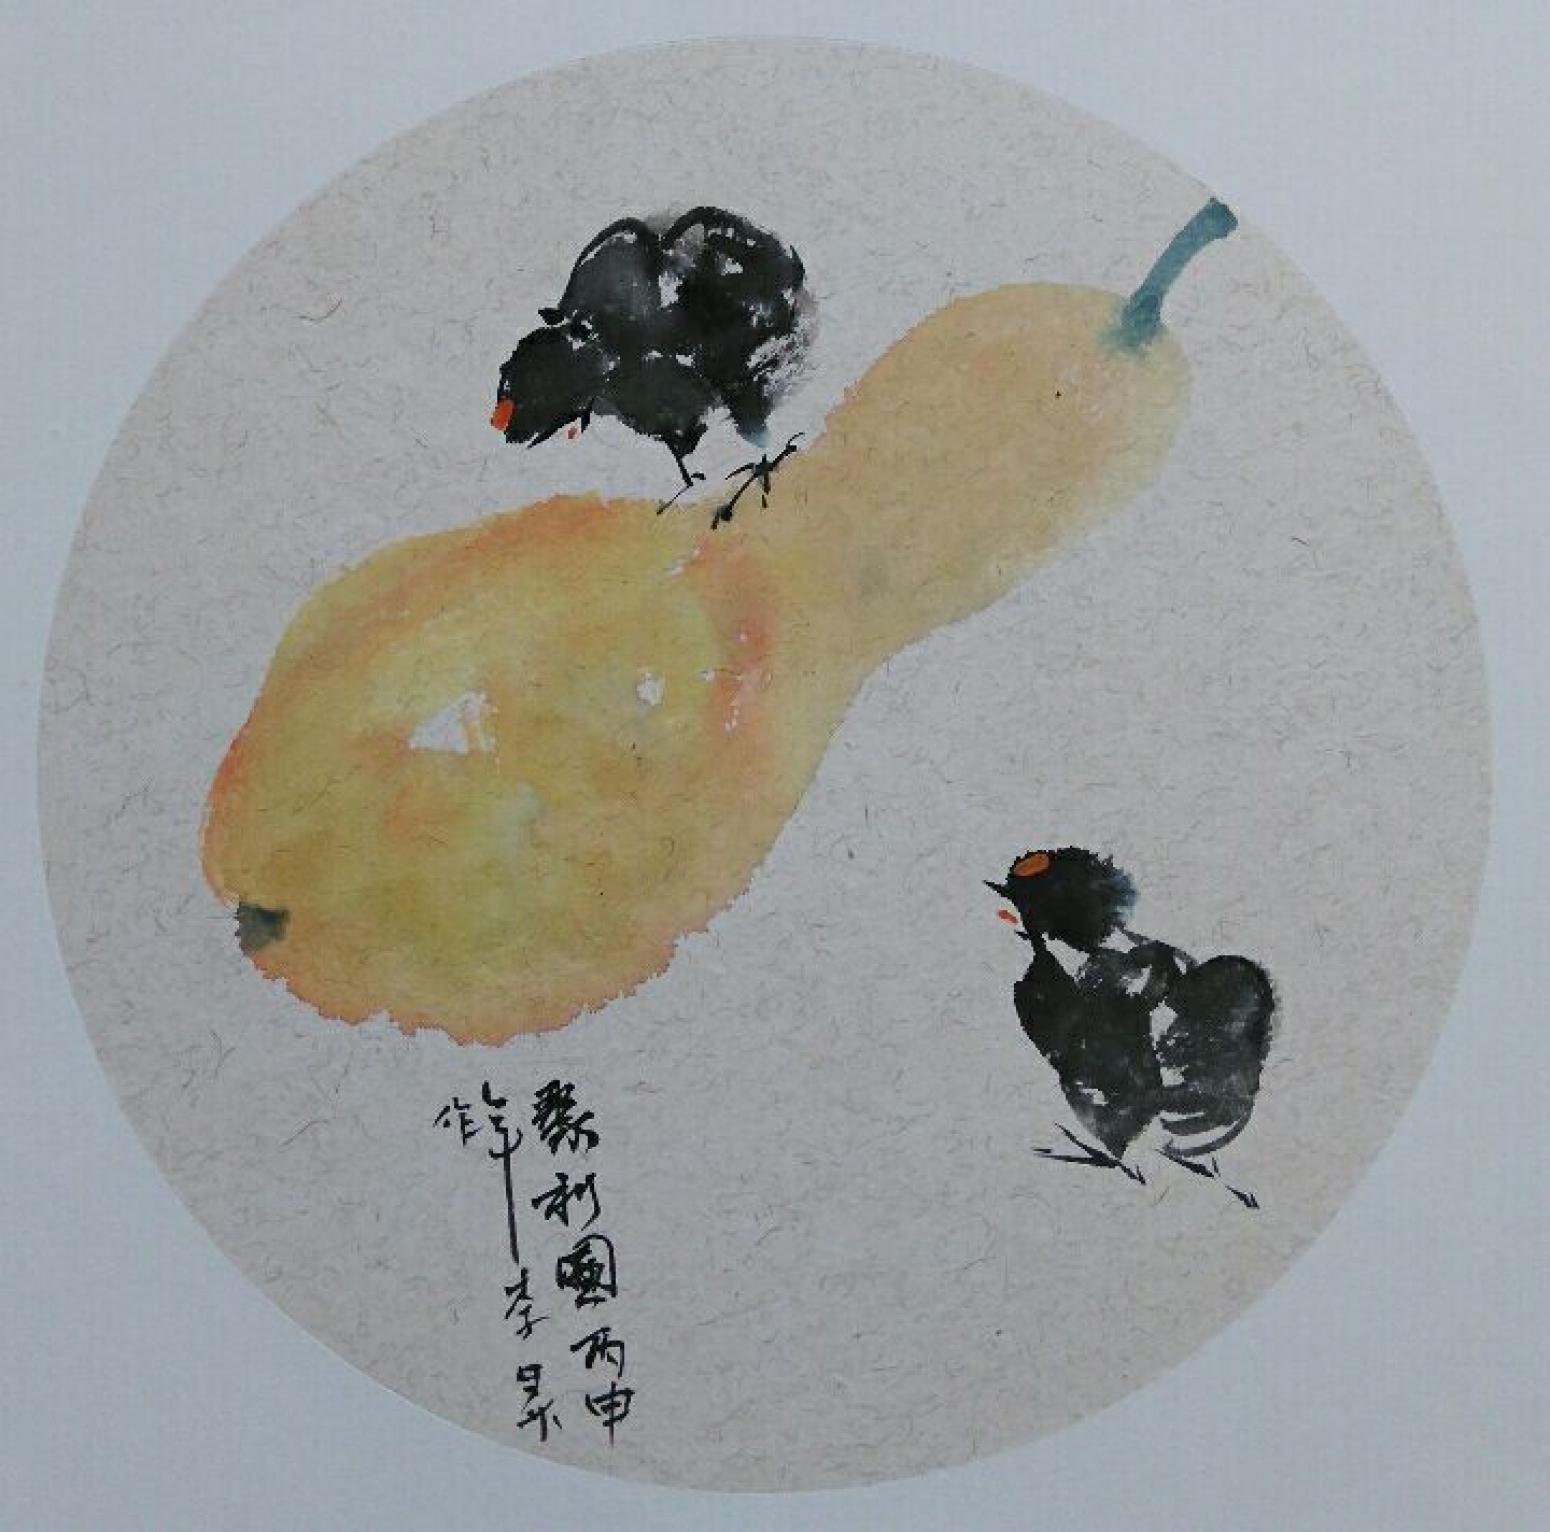 聚利圖丙申
年李昊
作